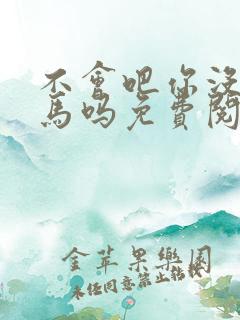 不會吧你没
馬嗎免費閱
金苹果樂園
未经同意禁止转载